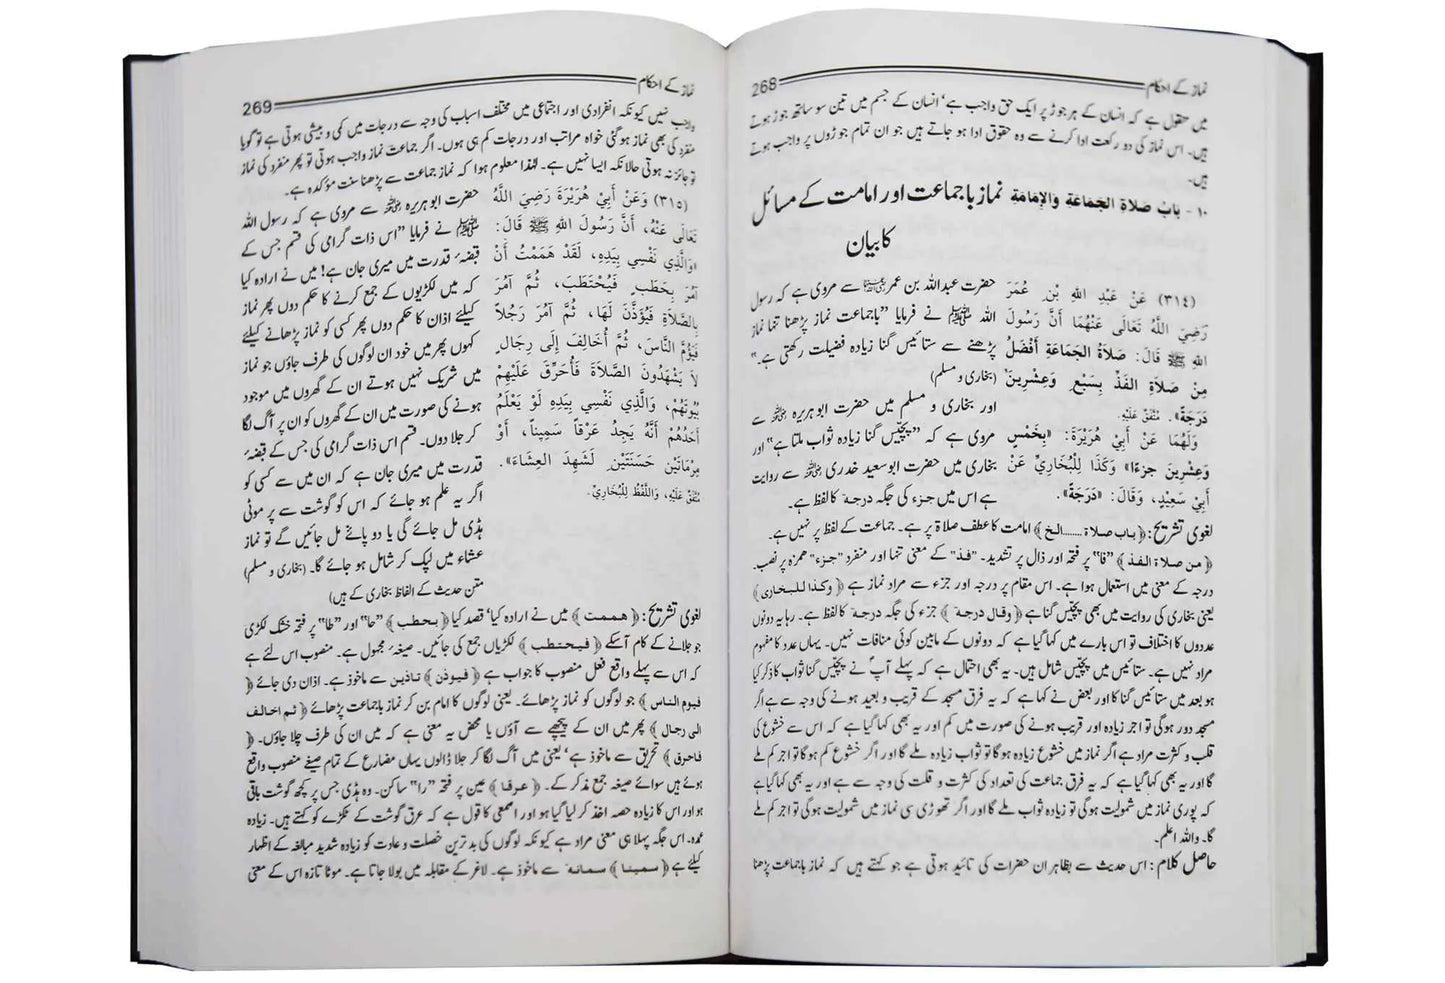 نماز کے احکام 268
میں منقول ہے کہ انسان کے ہر جوڑ پر ایک حق واجب ہے' انسان کے جسم میں تین سو ساٹھ جوڑ ہوتے
ہیں۔ اس نماز کی دو رکعت ادا کرنے سے وہ حقوق ادا ہو جاتے ہیں جو ان تمام جوڑوں پر واجب ہوتے
ہیں۔
۱۰ - بَابُ صَلاَةِ الجَمَاعَةِ وَالإِمَامَةِ نماز باجماعت اور امامت کے مسائل
کا بیان
(٣١٤) عَنْ عَبْدِ اللهِ بْنِ عُمَرَ
رَضِيَ اللَّهُ تَعَالَى عَنْهُمَا أَنَّ رَسُولَ
اللهِ ﷺ قَالَ: صَلاَةُ الجَمَاعَةِ أَفْضَلُ
مِنْ صَلاَةِ الفَذِّ بِسَبْعٍ وَعِشْرِينَ
دَرَجَةً». مُتَّفَقٌ عَلَيْهِ.
وَلَهُمَا عَنْ أَبِي هُرَيْرَةَ: «بِخَمْسٍ
وَعِشْرِينَ جزءًا» وَكَذَا لِلْبُخَارِيِّ عَنْ
أَبِي سَعِيْدٍ، وَقَالَ: «دَرَجَةً».
حضرت عبداللہ بن عمر رضی اللہ عنہما سے مروی ہے کہ رسول
اللہ ﷺ نے فرمایا "باجماعت نماز پڑھنا تنہا نماز
پڑھنے سے ستائیس گنا زیادہ فضیلت رکھتی ہے۔"
(بخاری و مسلم)
اور بخاری و مسلم میں حضرت ابو ہریرہ رضی اللہ عنہ سے
مروی ہے کہ "پچیس گنا زیادہ ثواب ملتا ہے" اور
بخاری میں حضرت ابوسعید خدری رضی اللہ عنہ سے روایت
ہے اس میں جزء کی جگہ درجة کا لفظ ہے۔
لغوی تشریح: ﴿باب صلاة ......... الخ﴾ امامت کا عطف صلاة پر ہے۔ جماعت کے لفظ پر نہیں ہے۔
﴿من صلاة الفذ﴾ "فا" پر فتحہ اور ذال پر تشدید۔ "فذ" کے معنی تنہا اور منفرد "جزء" ہمزہ پر نصب۔
درجہ کے معنی میں استعمال ہوا ہے۔ اس مقام پر درجہ اور جزء سے مراد نماز ہے ﴿وكذا للبخاری﴾
یعنی بخاری کی روایت میں بھی پچیس گنا ہے ﴿وقال درجة﴾ جزء کی جگہ درجة کا لفظ ہے۔ رہا یہ دونوں
عددوں کا اختلاف تو اس بارے میں کہا گیا ہے کہ دونوں کے مابین کوئی منافات نہیں۔ یہاں عدد کا مفہوم
مراد نہیں ہے۔ ستائیس میں پچیس شامل ہیں۔ یہ بھی احتمال ہے کہ پہلے آپ نے پچیس گنا ثواب کا ذکر کیا
ہو بعد میں ستائیس گنا کا اور بعض نے کہا ہے کہ یہ فرق مسجد کے قریب و بعید ہونے کی وجہ سے ہے اگر
مسجد دور ہوگی تو اجر زیادہ اور قریب ہونے کی صورت میں کم اور یہ بھی کہا گیا ہے کہ اس سے خشوع کی
قلب و کثرت مراد ہے اگر نماز میں خشوع زیادہ ہوگا تو ثواب زیادہ ملے گا اور اگر خشوع کم ہوگا تو اجر کم ملے
گا اور یہ بھی کہا گیا ہے کہ یہ فرق جماعت کی تعداد کی کثرت و قلت کی وجہ سے ہے اور یہ بھی کہا گیا ہے
کہ پوری نماز میں شمولیت ہوگی تو زیادہ ثواب ملے گا اور اگر تھوڑی سی نماز میں شمولیت ہوگی تو اجر کم ملے
گا۔ واللہ اعلم۔
حاصل کلام: اس حدیث سے بظاہر ان حضرات کی تائید ہوتی ہے جو کہتے ہیں کہ نماز باجماعت پڑھنا
نماز کے احکام 269
واجب نہیں کیونکہ انفرادی اور اجتماعی میں مختلف اسباب کی وجہ سے درجات میں کمی و بیشی ہوتی ہے تو گویا
منفرد کی بھی نماز ہوگئی خواہ مراتب اور درجات کم ہی ہوں۔ اگر جماعت نماز واجب ہوتی تو پھر منفرد کی نماز
تو جائز نہ ہوتی حالانکہ ایسا نہیں ہے۔ لہٰذا معلوم ہوا کہ نماز جماعت سے پڑھنا سنت مؤکدہ ہے۔
(٣١٥) وَعَنْ أَبِي هُرَيْرَةَ رَضِيَ اللَّهُ
تَعَالَى عَنْهُ، أَنَّ رَسُولَ اللهِ ﷺ قَالَ:
«وَالَّذِي نَفْسِي بِيَدِهِ، لَقَدْ هَمَمْتُ أَنْ
آمُرَ بِحَطَبٍ فَيُحْتَطَبَ، ثُمَّ آمُرَ
بِالصَّلاَةِ فَيُؤَذَّنَ لَهَا، ثُمَّ آمُرَ رَجُلاً
فَيَؤُمَّ النَّاسَ، ثُمَّ أُخَالِفَ إِلَى رِجَالٍ
لاَ يَشْهَدُونَ الصَّلاَةَ فَأُحَرِّقَ عَلَيْهِمْ
بُيُوتَهُمْ، وَالَّذِي نَفْسِي بِيَدِهِ لَوْ يَعْلَمُ
أَحَدُهُمْ أَنَّهُ يَجِدُ عَرْقاً سَمِيناً، أَوْ
مِرْمَاتَيْنِ حَسَنَتَيْنِ لَشَهِدَ العِشَاءَ».
مُتَّفَقٌ عَلَيْهِ، وَاللَّفْظُ لِلْبُخَارِيِّ.
حضرت ابو ہریرہ رضی اللہ عنہ سے مروی ہے کہ رسول اللہ
ﷺ نے فرمایا "اس ذات گرامی کی قسم جس کے
قبضہ قدرت میں میری جان ہے! میں نے ارادہ کیا
کہ میں لکڑیوں کے جمع کرنے کا حکم دوں پھر نماز
کیلئے اذان کا حکم دوں پھر کسی کو نماز پڑھانے کیلئے
کہوں پھر میں خود ان لوگوں کی طرف جاؤں جو نماز
میں شریک نہیں ہوتے ان کے گھروں میں موجود
ہونے کی صورت میں ان کے گھروں کو ان پر آگ لگا
کر جلا دوں۔ قسم اس ذات گرامی کی جس کے قبضہ
قدرت میں میری جان ہے کہ ان میں سے کسی کو
اگر یہ علم ہو جائے کہ اس کو گوشت سے پر موٹی
ہڈی مل جائے گی یا دو پائے مل جائیں گے تو نماز
عشاء میں لپک کر شامل ہو جائے گا۔ (بخاری و مسلم)
متن حدیث کے الفاظ بخاری کے ہیں)
لغوی تشریح: ﴿هممت﴾ میں نے ارادہ کیا' قصد کیا ﴿بحطب﴾ "حا" اور "طا" پر فتحہ خشک لکڑی
جو جلانے کے کام آسکے ﴿فيحتطب﴾ لکڑیاں جمع کی جائیں۔ صیغہ مجہول ہے۔ منصوب اس لئے ہے
کہ اس سے پہلے واقع فعل منصوب کا جواب ہے ﴿فيوذن﴾ تاذین سے ماخوذ ہے۔ اذان دی جائے ﴿
فيوم الناس﴾ جو لوگوں کو نماز پڑھائے۔ یعنی لوگوں کا امام بن کر نماز باجماعت پڑھائے ﴿ثم اخالف
الى رجال﴾ پھر میں ان کے پیچھے سے آؤں یا محض یہ معنی ہے کہ میں ان کی طرف چلا جاؤں۔ ﴿
فاحرق﴾ تحریق سے ماخوذ ہے' یعنی میں آگ لگا کر جلا ڈالوں یہاں مضارع کے تمام صیغے منصوب واقع
ہوئے ہیں سوائے صیغہ جمع مذکر کے۔ ﴿عرقا﴾ عین پر فتحہ "را" ساکن۔ وہ ہڈی جس پر کچھ گوشت باقی
ہو اور اس کا زیادہ حصہ اخذ کر لیا گیا ہو اور اصمعی کا قول ہے کہ عرق گوشت کے ٹکڑے کو کہتے ہیں۔ زیادہ
عمدہ۔ اس جگہ پہلا ہی معنی مراد ہے کیونکہ لوگوں کی بدترین خصلت و عادت کو زیادہ شدید مبالغہ کے اظہار
کیلئے ہے ﴿سمينا﴾ سمانة سے ماخوذ ہے۔ لاغر کے مقابلہ میں بولا جاتا ہے۔ موٹا تازہ اس کے معنی